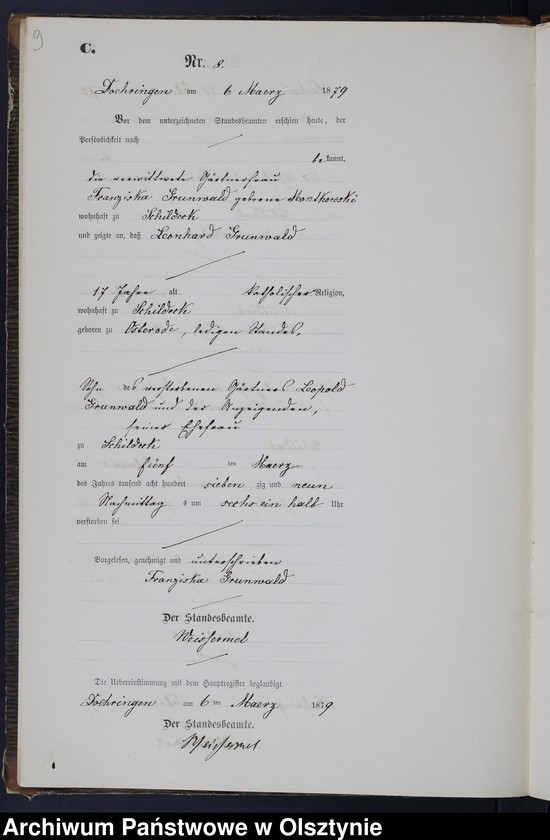 9
C.
Nr. 8.
Doehringen am 6 Maerz 1879
Vor dem unterzeichneten Standesbeamten erschien heute, der
Persönlichkeit nach
be kannt,
die verwittwete Gärtnerfrau
Franziska Grunwald geborne
wohnhaft zu Schildeck
und zeigte an, daß Leonhard Grunwald
17 Jahre alt katholischer Religion,
wohnhaft zu Schildeck
geboren zu Osterode, ledigen Standes,
Sohn des verstorbenen Gärtners Leopold
Grunwald und der Anzeigenden,
seiner Ehefrau
zu Schildeck
am fünf ten Maerz
des Jahres tausend acht hundert sieben zig und neun
Nachmittag s um sechs ein halb Uhr
verstorben sei
Vorgelesen, genehmigt und unterschrieben
Franziska Grunwald
Der Standesbeamte.
Weissermel
Die Uebereinstimmung mit dem Hauptregister beglaubigt.
Doehringen am 6 ten Maerz 1879
Der Standesbeamte.
Weissermel
Archiwum Państwowe w Olsztynie